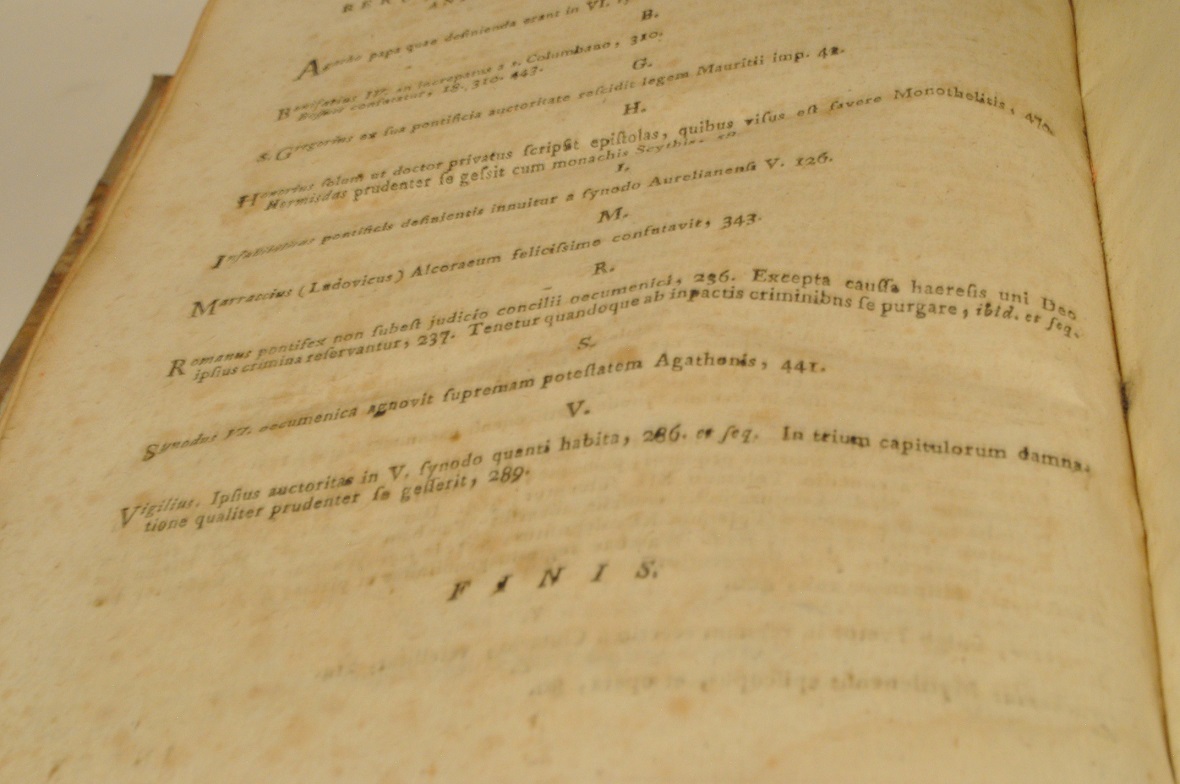 RER
AN
Agatho papa quae definienda erant in VI.
B.
Bonifatius IV. an increpatus a s. Columbano, 310.
confutatur, 18. 310. 447.
G.
S. Gregorius ex sua pontificia auctoritate rescidit legem Mauritii imp. 42.
H.
Honorius solum ut doctor privatus scripsit epistolas, quibus visus est favere Monothelitis, 470.
Hormisdas prudenter se gessit cum monachis Scythis,
I.
Infallibilitas pontificis definientis innuitur a synodo Aurelianensi V. 126.
M.
Marraccius (Ludovicus) Alcoraeum felicissime confutavit, 343.
R.
Romanus pontifex non subest judicio concilii oecumenici, 236. Excepta caussa haeresis uni Deo
ipsius crimina reservantur, 237. Tenetur quandoque ab inpactis criminibns se purgare, ibid. et seq.
S.
Synodus VI. oecumenica agnovit supremam potestatem Agathonis, 441.
V.
Vigilius. Ipsius auctoritas in V. synodo quanti habita, 286. et seq. In trium capitulorum damna-
tione qualiter prudenter se gesserit, 289.
FINIS.